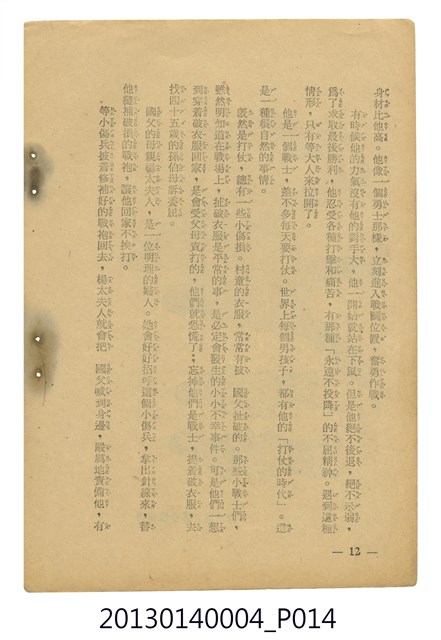 身材比他高。他像一個勇士那樣，立刻進入戰鬬位置，奮勇作戰。
有時候他的力氣沒有他的對手大，他一開始就站在下風。但是他絕不後退，絕不示弱，
爲了求取最後勝利，他忍受各種打擊和痛苦，有那種「永遠不投降」的不屈精神。遇到這種
情形，只有等大人來拉開了。
他是一個戰士，差不多每天要打仗。世界上每個男孩子，都有他的「打仗的時代」。這
是一種很自然的事情。
旣然是打仗，總有一些小傷損。村童的衣服，常常有被 國父扯破的。那些小戰士們，
雖然明知道在戰場上，扯破衣服是平常的事，是必定會發生的小小不幸事件。可是他們一想
到穿着破衣服回家，是會受父母責打的，他們就恐慌了；忘掉他們是戰士，提着破衣服，去
找四十五歲的孫伯母訴委屈。
國父的母親楊太夫人，是一位明理的婦人。她會好好招呼這個小傷兵，拿出針線來，替
他縫補破損的戰袍，讓他回家不挨打。
等小傷兵披着修補好的戰袍回去，楊太夫人就會把 國父喊到身邊，嚴厲地責備他，有
— 12 —
20130140004_P014